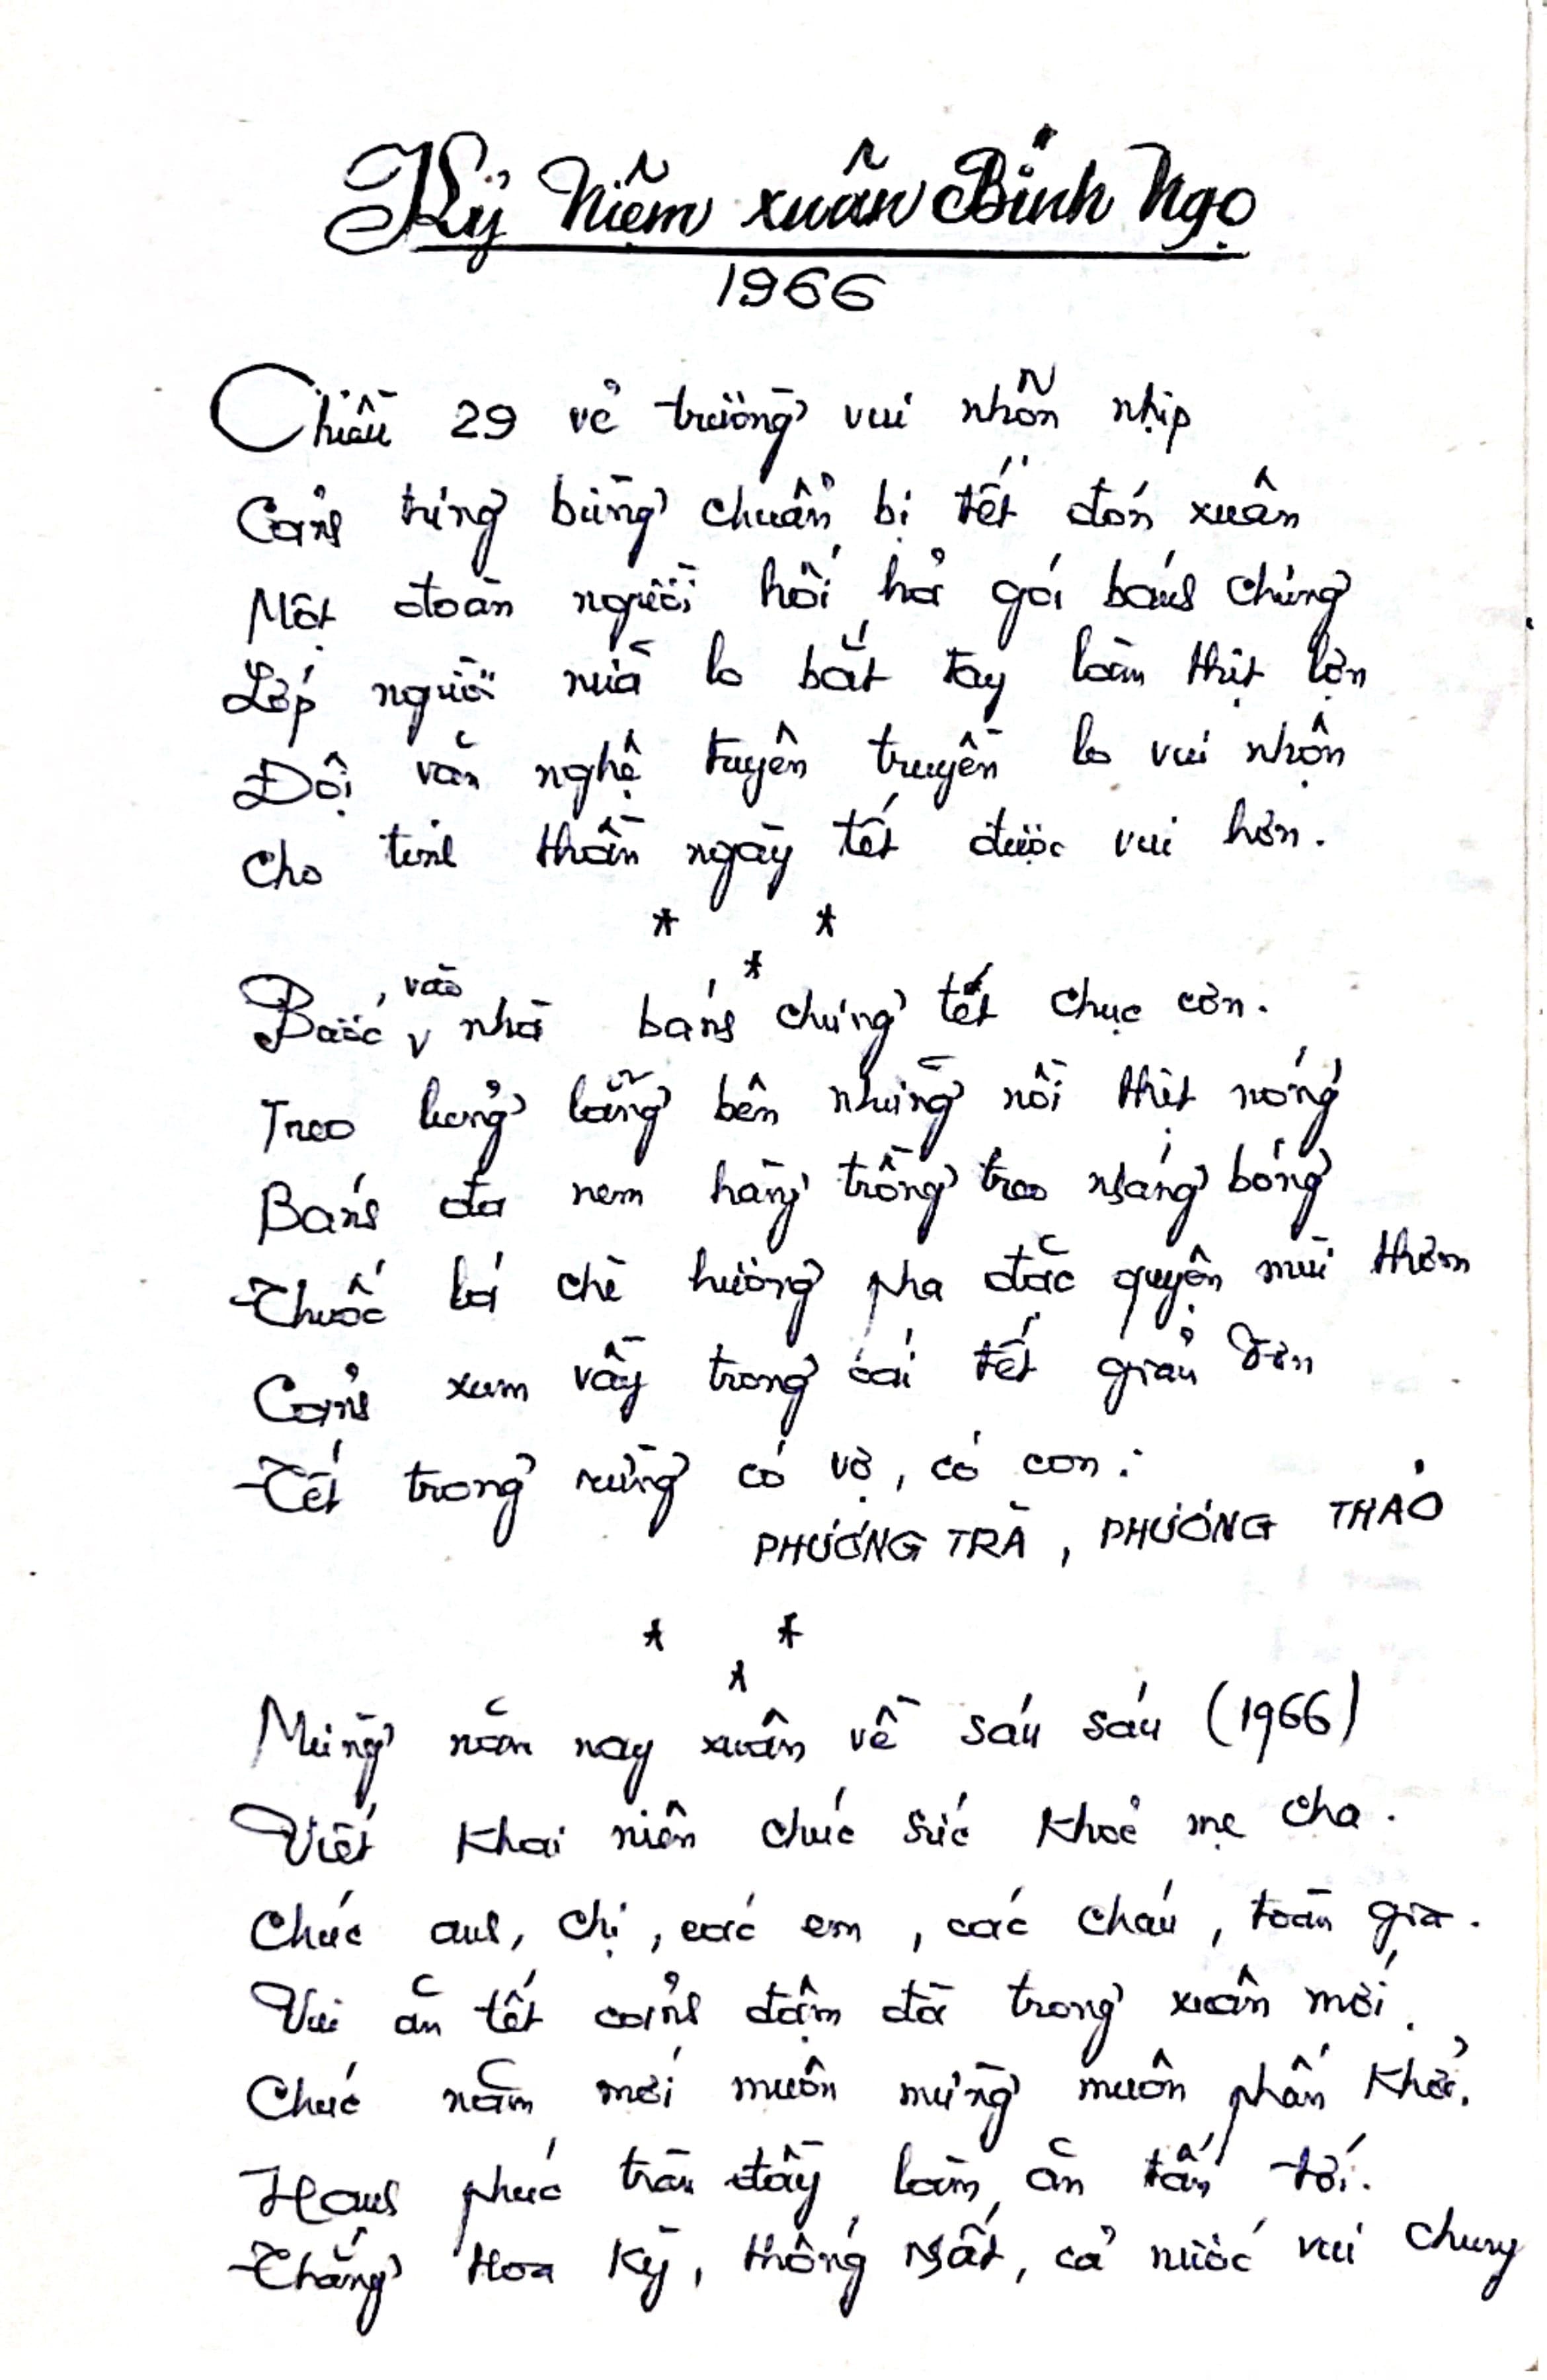 Kỷ Niệm xuân Bính Ngọ
1966
Chiều 29 về trường vui nhộn nhịp
Cảnh tưng bừng chuẩn bị tết đón xuân
Một đoàn người hối hả gói bánh chưng
Lớp người nữa lo bắt tay làm thịt lợn
Đội văn nghệ tuyên truyền lo vui nhộn
Cho tinh thần ngày tết được vui hơn.
* *
*
Bước vào nhà bánh chưng tết chục cơn.
Treo lủng lẳng bên những nồi thịt nóng
Bánh đa nem hàng trồng treo nháng bóng
Thuốc lá chè hương pha đặc quyện mùi thơm
Cảnh xum vầy trong cái tết giản đơn
Tết trong rừng có vợ, có con:
PHƯƠNG TRÀ, PHƯƠNG THẢO
* *
*
Mừng năm nay xuân về sáu sáu (1966)
Viết khai niên chúc sức khoẻ mẹ cha.
Chúc anh, chị, các em, các cháu, toàn gia.
Vui ăn tết cảnh đậm đà trong xuân mới.
Chúc năm mới muôn mừng muôn phấn khởi.
Hạnh phúc tràn đầy, làm ăn tấn tới.
Thắng Hoa Kỳ, thống nhất, cả nước vui chung